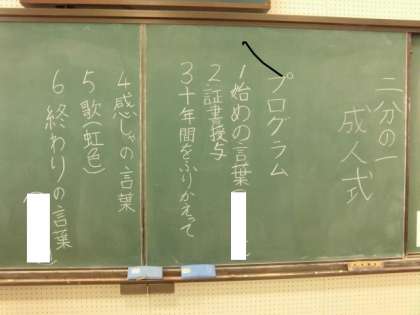 二分の一
成人式
プログラム
1 始めの言葉
2 証書授与
3 十年間をふりかえって
4 感しゃの言葉
5 歌(虹色)
6 終わりの言葉